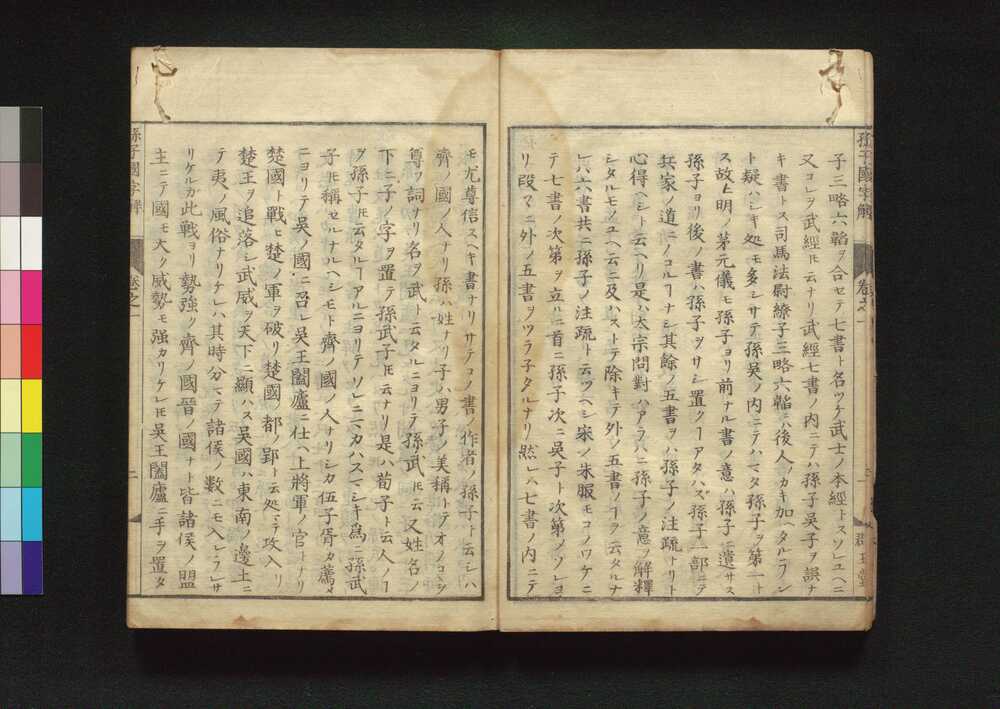 孫子國字解
卷之一
群玉堂
子三略六韜ヲ合セテ七書ト名ツケ武士ノ本經トスソレユヘニ
又コレヲ武經ト云ナリ武經七書ノ内ニテハ孫子吳子ヲ誤ナ
キ書トス司馬法尉繚子三略六韜ニハ後人ノカキ加ヘタルラン
ト疑ハシキ処モ多シサテ孫吳ノ内ニテハマタ孫子ヲ第一ト
ス故ニ明ノ茅元儀モ孫子ヨリ前ナル書ノ意ハ孫子ニ遺サス
孫子ヨリ後ノ書ハ孫子ヲサシ置クヿアタハズ孫子一部ニテ
兵家ノ道ニノコルヿナシ其餘ノ五書ヲハ孫子ノ注疏ナリト
心得ヘシト云ヘリ是ハ太宗問對ハアラハニ孫子ノ意ヲ解釋
シタルモノユヘ云ニ及ハストテ除キテ外ノ五書ノヿヲ云タルナ
レハ六書共ニ孫子ノ注疏ト云ツヘシ宋ノ朱服モコノワケニ
テ七書ノ次第ヲ立ルニ首ニ孫子次ニ吳子ト次第ノソレヨ
リ段々ニ外ノ五書ヲツラ子タルナリ然レハ七書ノ内ニテ
モ尤尊信スヘキ書ナリサテコノ書ノ作者ノ孫子ト云シハ
齊ノ國ノ人ナリ孫ハ姓ナリ子ハ男子ノ美稱トテオノコヲ
尊フ詞ナリ名ヲ武ト云タルニヨリテ孫武トモ云又姓名ノ
下ニ子ノ字ヲ置テ孫武子トモ云ナリ是ハ荀子ト云人ノヿ
ヲ孫子トモ云タルヿアルニヨリテソレニマカハスマシキ爲ニ孫武
子トモ稱セルナルヘシモト齊ノ國ノ人ナリシカ伍子胥カ薦メ
ニヨリテ吳ノ國ニ召レ吳王闔廬ニ仕ヘ上將軍ノ官トナリ
楚國ト戰ヒ楚ノ軍ヲ破リ楚國ノ都ノ郢ト云処マテ攻入リ
楚王ヲ追落シ武威ヲ天下ニ顯ハス吳國ハ東南ノ邊土ニ
テ夷ノ風俗ナリケレハ其時分マテ諸侯ノ數ニモ入レラレサ
リケルカ此戰ヨリ勢強ク齊ノ國晉ノ國ナト皆諸侯ノ盟
主ニテ國モ大ク威勢モ強カリケレトモ吳王闔廬ニ手ヲ置タ
孫子國字解
卷之一
二